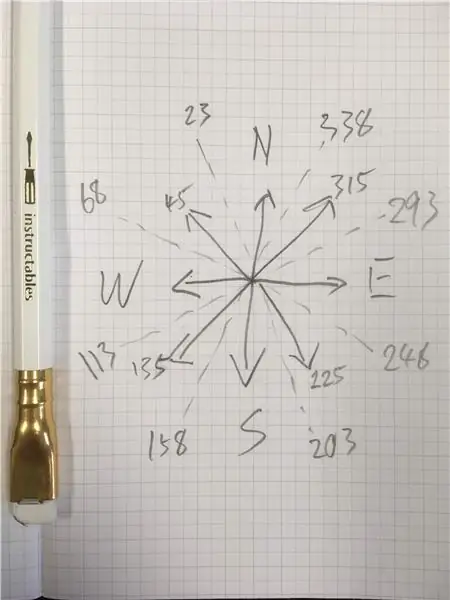 23
338
N
68
45
315
293
W
E
113
135
225
246
158
S
203
instructables